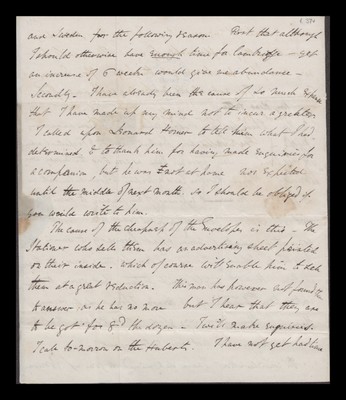 and Sweden for the following reason First that although
I should otherwise have enough time for Cambridge — yet
an increase of 6 weeks would give an abundance —
Secondly. I have already been the cause of so much expense
that I have made up my mind not to incur a greater.
I called upon Leonard Horner to tell him what I had
determined & to thank him for having made enquiries for
a companion, but he was not at home nor expected
until the middle of next month, so I should be obliged if
you would write to him.
The cause of the cheapness of the Envelopes is this — The
Stationer who sells them has an advertising sheet printed
on their inside. which of course will enable him to sell
them at a great reduction. This man has however not found it
to answer so he has no more but I hear that they are
to be got for 8d the dozen — I will make enquiries.
I call to-morrow on the Huberts. I have not yet had time